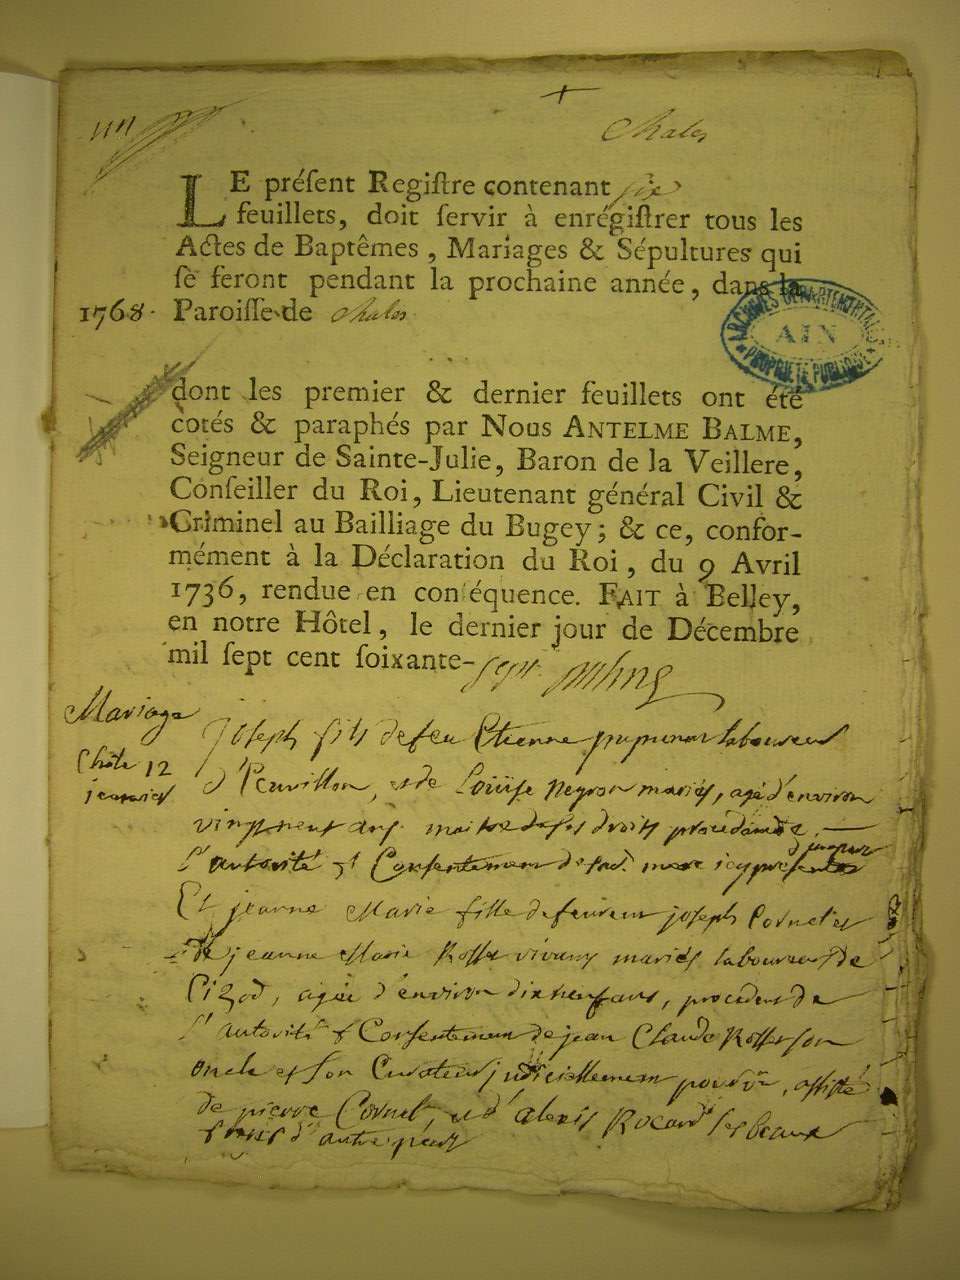 +
Chales
LE préſent Regiſtre contenant six
feuillets, doit ſervir à enrégiſtrer tous les
Actes de Baptêmes, Mariages & Sépultures qui
ſe feront pendant la prochaine année, dans la
1768. Paroiſſe de Chales
ARCHIVES DEPARTEMENTALES
AIN
PROPRIETE PUBLIQUE
dont les premier & dernier feuillets ont été
cotés & paraphés par NOUS ANTELME BALME,
Seigneur de Sainte-Julie, Baron de la Veillere,
Conſeiller du Roi, Lieutenant général Civil &
Criminel au Bailliage du Bugey; & ce, confor-
mément à la Déclaration du Roi, du 9 Avril
1736, rendue en conſéquence. FAIT à Belley,
en notre Hôtel, le dernier jour de Décembre
mil ſept cent ſoixante-sept
Mariage
12
janvier
joseph fils de feu Etienne laboureur
d' et de Louïse Neyron mariés, agé d'environ
vingt neuf ans maitre de ses droits procedant de
l'autorité et Consentement de sad. mere icy presente
d'une part
Et jeanne Marie fille de feu joseph Cornet et
de jeanne Marie Rosset vivans mariés laboureurs de
agée d'environ dixneuf ans, procedant de
l'autorité & Consentement de jean Claude Rosset son
oncle et son Curateur judiciellement pourvu, assisté
de pierre Cornet, et d'alexis Rocard ses beaux
freres d'autre part